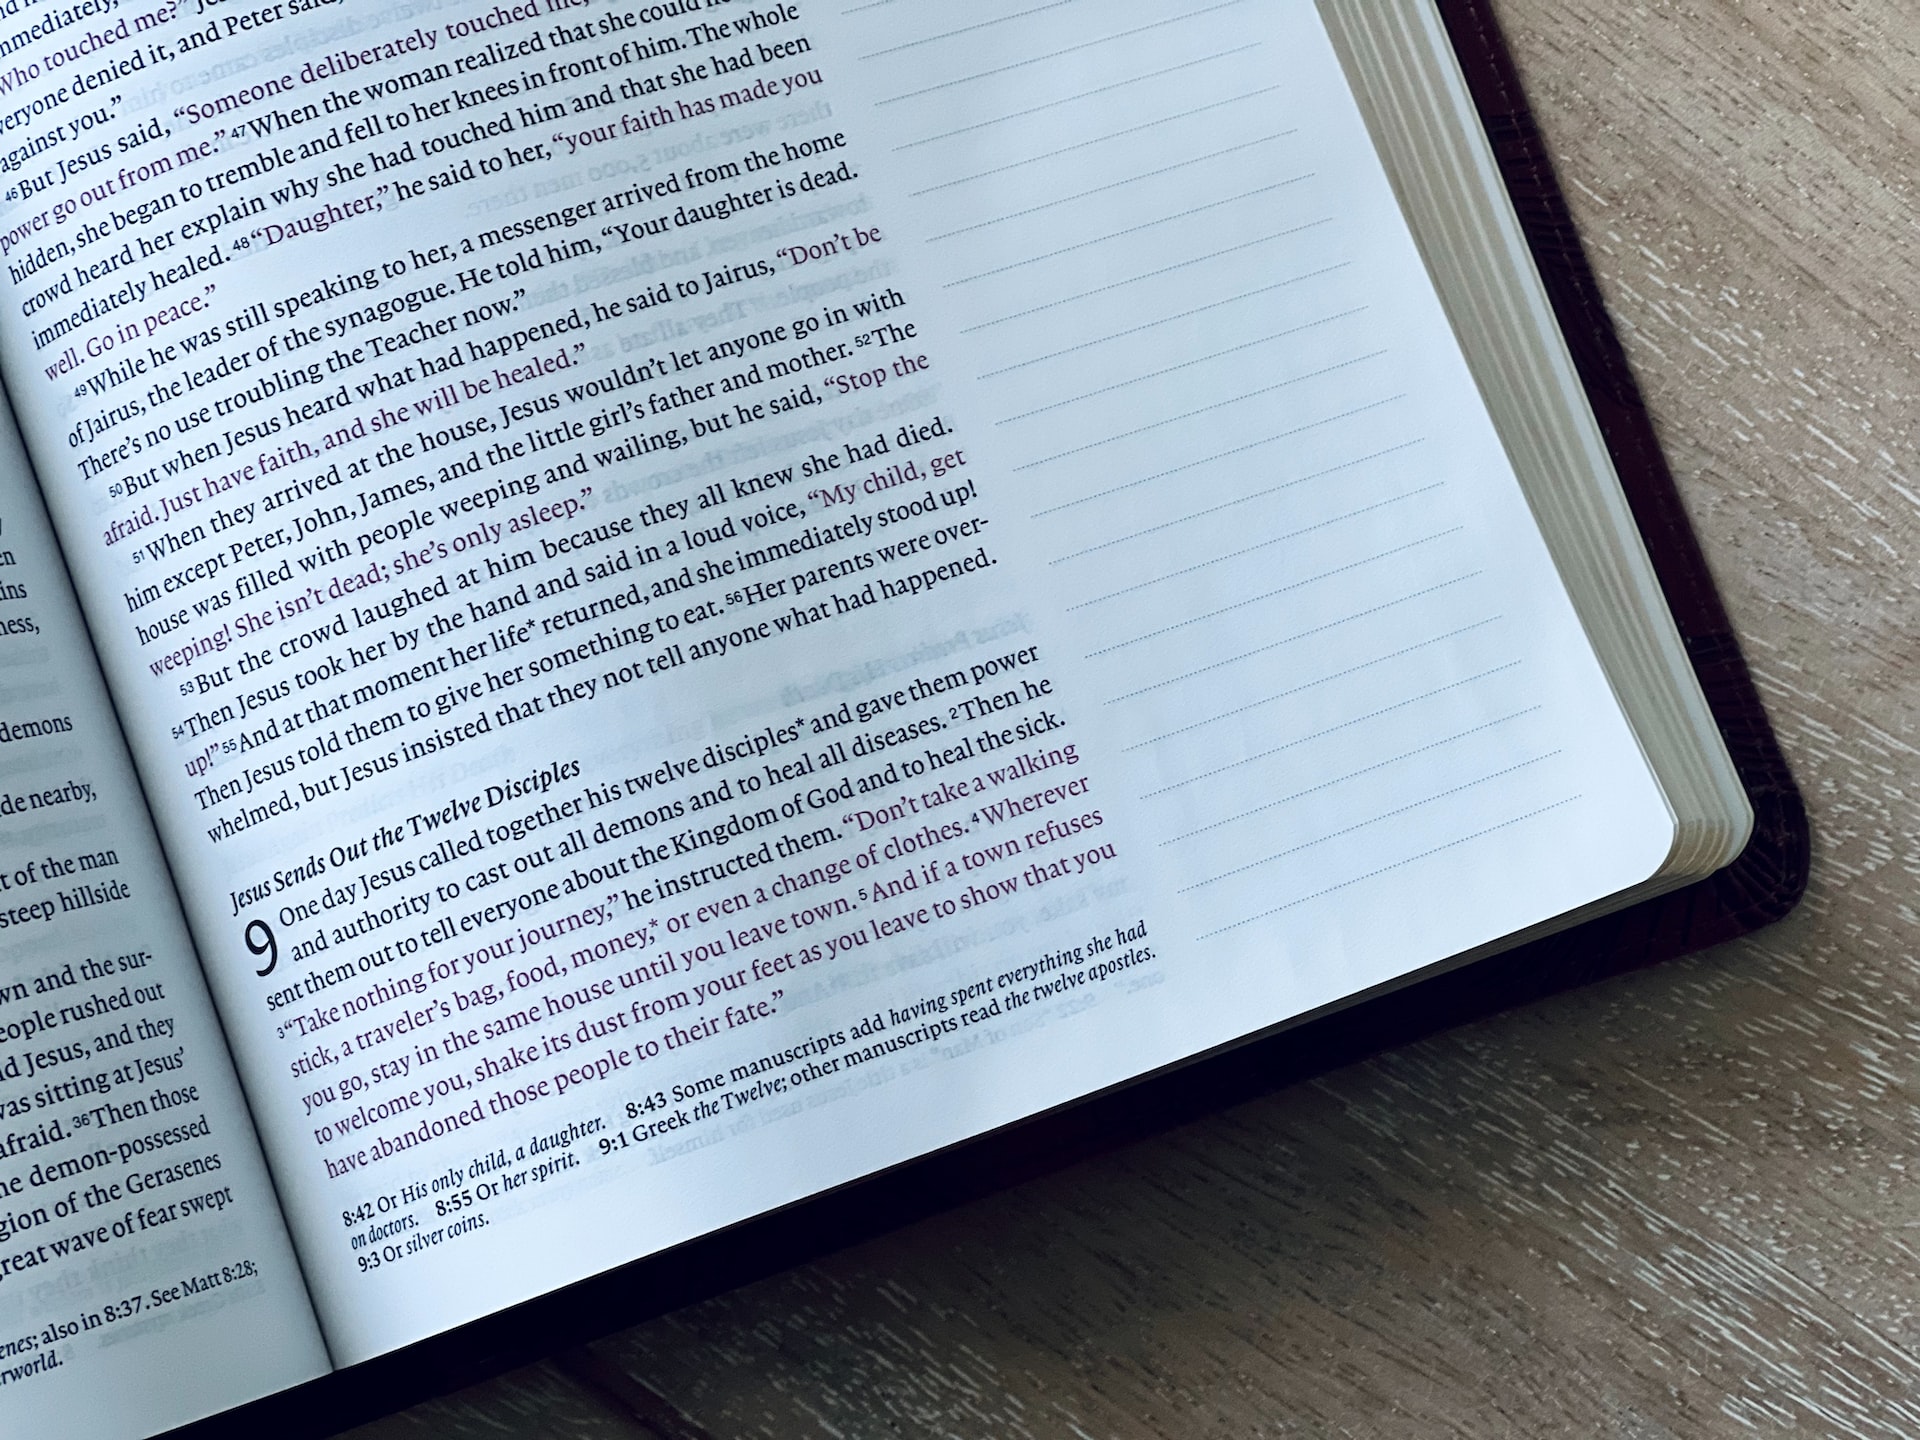 demons
de nearby,
of the man
steep hillside
and the sur-
people rushed out
Jesus, and they
was sitting at Jesus'
afraid. 36Then those
demon-possessed
of the Gerasenes
great wave of fear swept
also in 8:37. See Matt 8:28;
Who touched me?"
everyone denied it, and Peter said,
against you."
46But Jesus said, "Someone deliberately touched me,
power go out from me." 47When the woman realized that she could
hidden, she began to tremble and fell to her knees in front of him. The whole
crowd heard her explain why she had touched him and that she had been
immediately healed. 48"Daughter," he said to her, "your faith has made you
well. Go in peace."
49While he was still speaking to her, a messenger arrived from the home
of Jairus, the leader of the synagogue. He told him, "Your daughter is dead.
There's no use troubling the Teacher now."
50But when Jesus heard what had happened, he said to Jairus, "Don't be
afraid. Just have faith, and she will be healed."
51When they arrived at the house, Jesus wouldn't let anyone go in with
him except Peter, John, James, and the little girl's father and mother. 52The
house was filled with people weeping and wailing, but he said, "Stop the
weeping! She isn't dead; she's only asleep."
53But the crowd laughed at him because they all knew she had died.
54Then Jesus took her by the hand and said in a loud voice, "My child, get
up!" 55And at that moment her life* returned, and she immediately stood up!
Then Jesus told them to give her something to eat. 56Her parents were over-
whelmed, but Jesus insisted that they not tell anyone what had happened.
Jesus Sends Out the Twelve Disciples
9 One day Jesus called together his twelve disciples* and gave them power
and authority to cast out all demons and to heal all diseases. 2Then he
sent them out to tell everyone about the Kingdom of God and to heal the sick.
3"Take nothing for your journey," he instructed them. "Don't take a walking
stick, a traveler's bag, food, money,* or even a change of clothes. 4Wherever
you go, stay in the same house until you leave town. 5And if a town refuses
to welcome you, shake its dust from your feet as you leave to show that you
have abandoned those people to their fate."
8:42 Or His only child, a daughter. 8:43 Some manuscripts add having spent everything she had
on doctors. 8:55 Or her spirit. 9:1 Greek the Twelve; other manuscripts read the twelve apostles.
9:3 Or silver coins.